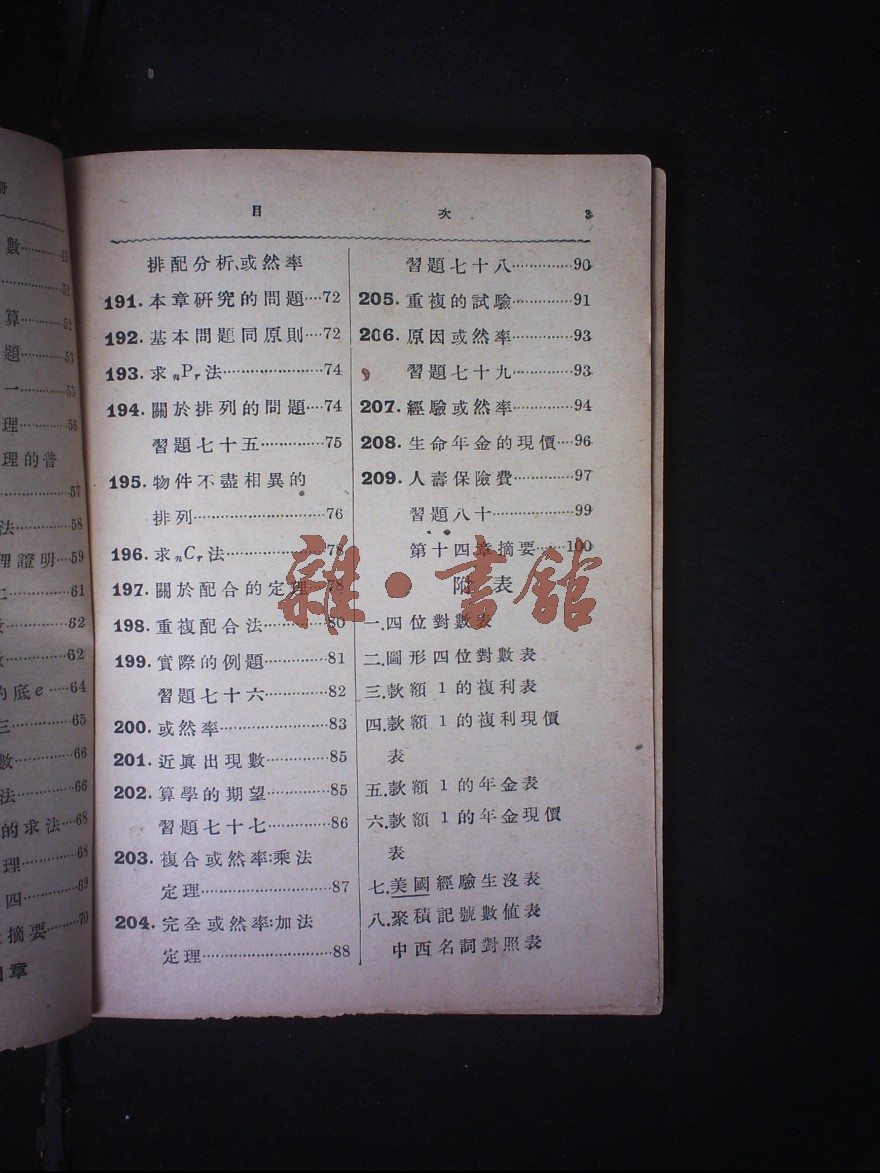 冊
數……
……51
算……52
題……53
一……55
理……56
理的普
……57
法……58
理證明…59
……61
……62
……62
的底e……64
三……65
數……66
法……66
的求法…68
理……68
四……69
摘要……70
章
目 次 3
排配分析、或然率
191. 本章研究的問題…72
192. 基本問題同原則…72
193. 求nPr法……74
194. 關於排列的問題…74
習題七十五……75
195. 物件不盡相異的
排列……76
196. 求nCr法……78
197. 關於配合的定理…78
198. 重複配合法……80
199. 實際的例題……81
習題七十六……82
200. 或然率……83
201. 近眞出現數……85
202. 算學的期望……85
習題七十七……86
203. 複合或然率:乘法
定理……87
204. 完全或然率:加法
定理……88
習題七十八……90
205. 重複的試驗……91
206. 原因或然率……93
習題七十九……93
207. 經驗或然率……94
208. 生命年金的現價…96
209. 人壽保險費……97
習題八十……99
第十四章摘要……100
附表
一.四位對數表
二.圖形四位對數表
三.款額1的複利表
四.款額1的複利現價
表
五.款額1的年金表
六.款額1的年金現價
表
七.美國經驗生沒表
八.聚積記號數值表
中西名詞對照表
雜·書館